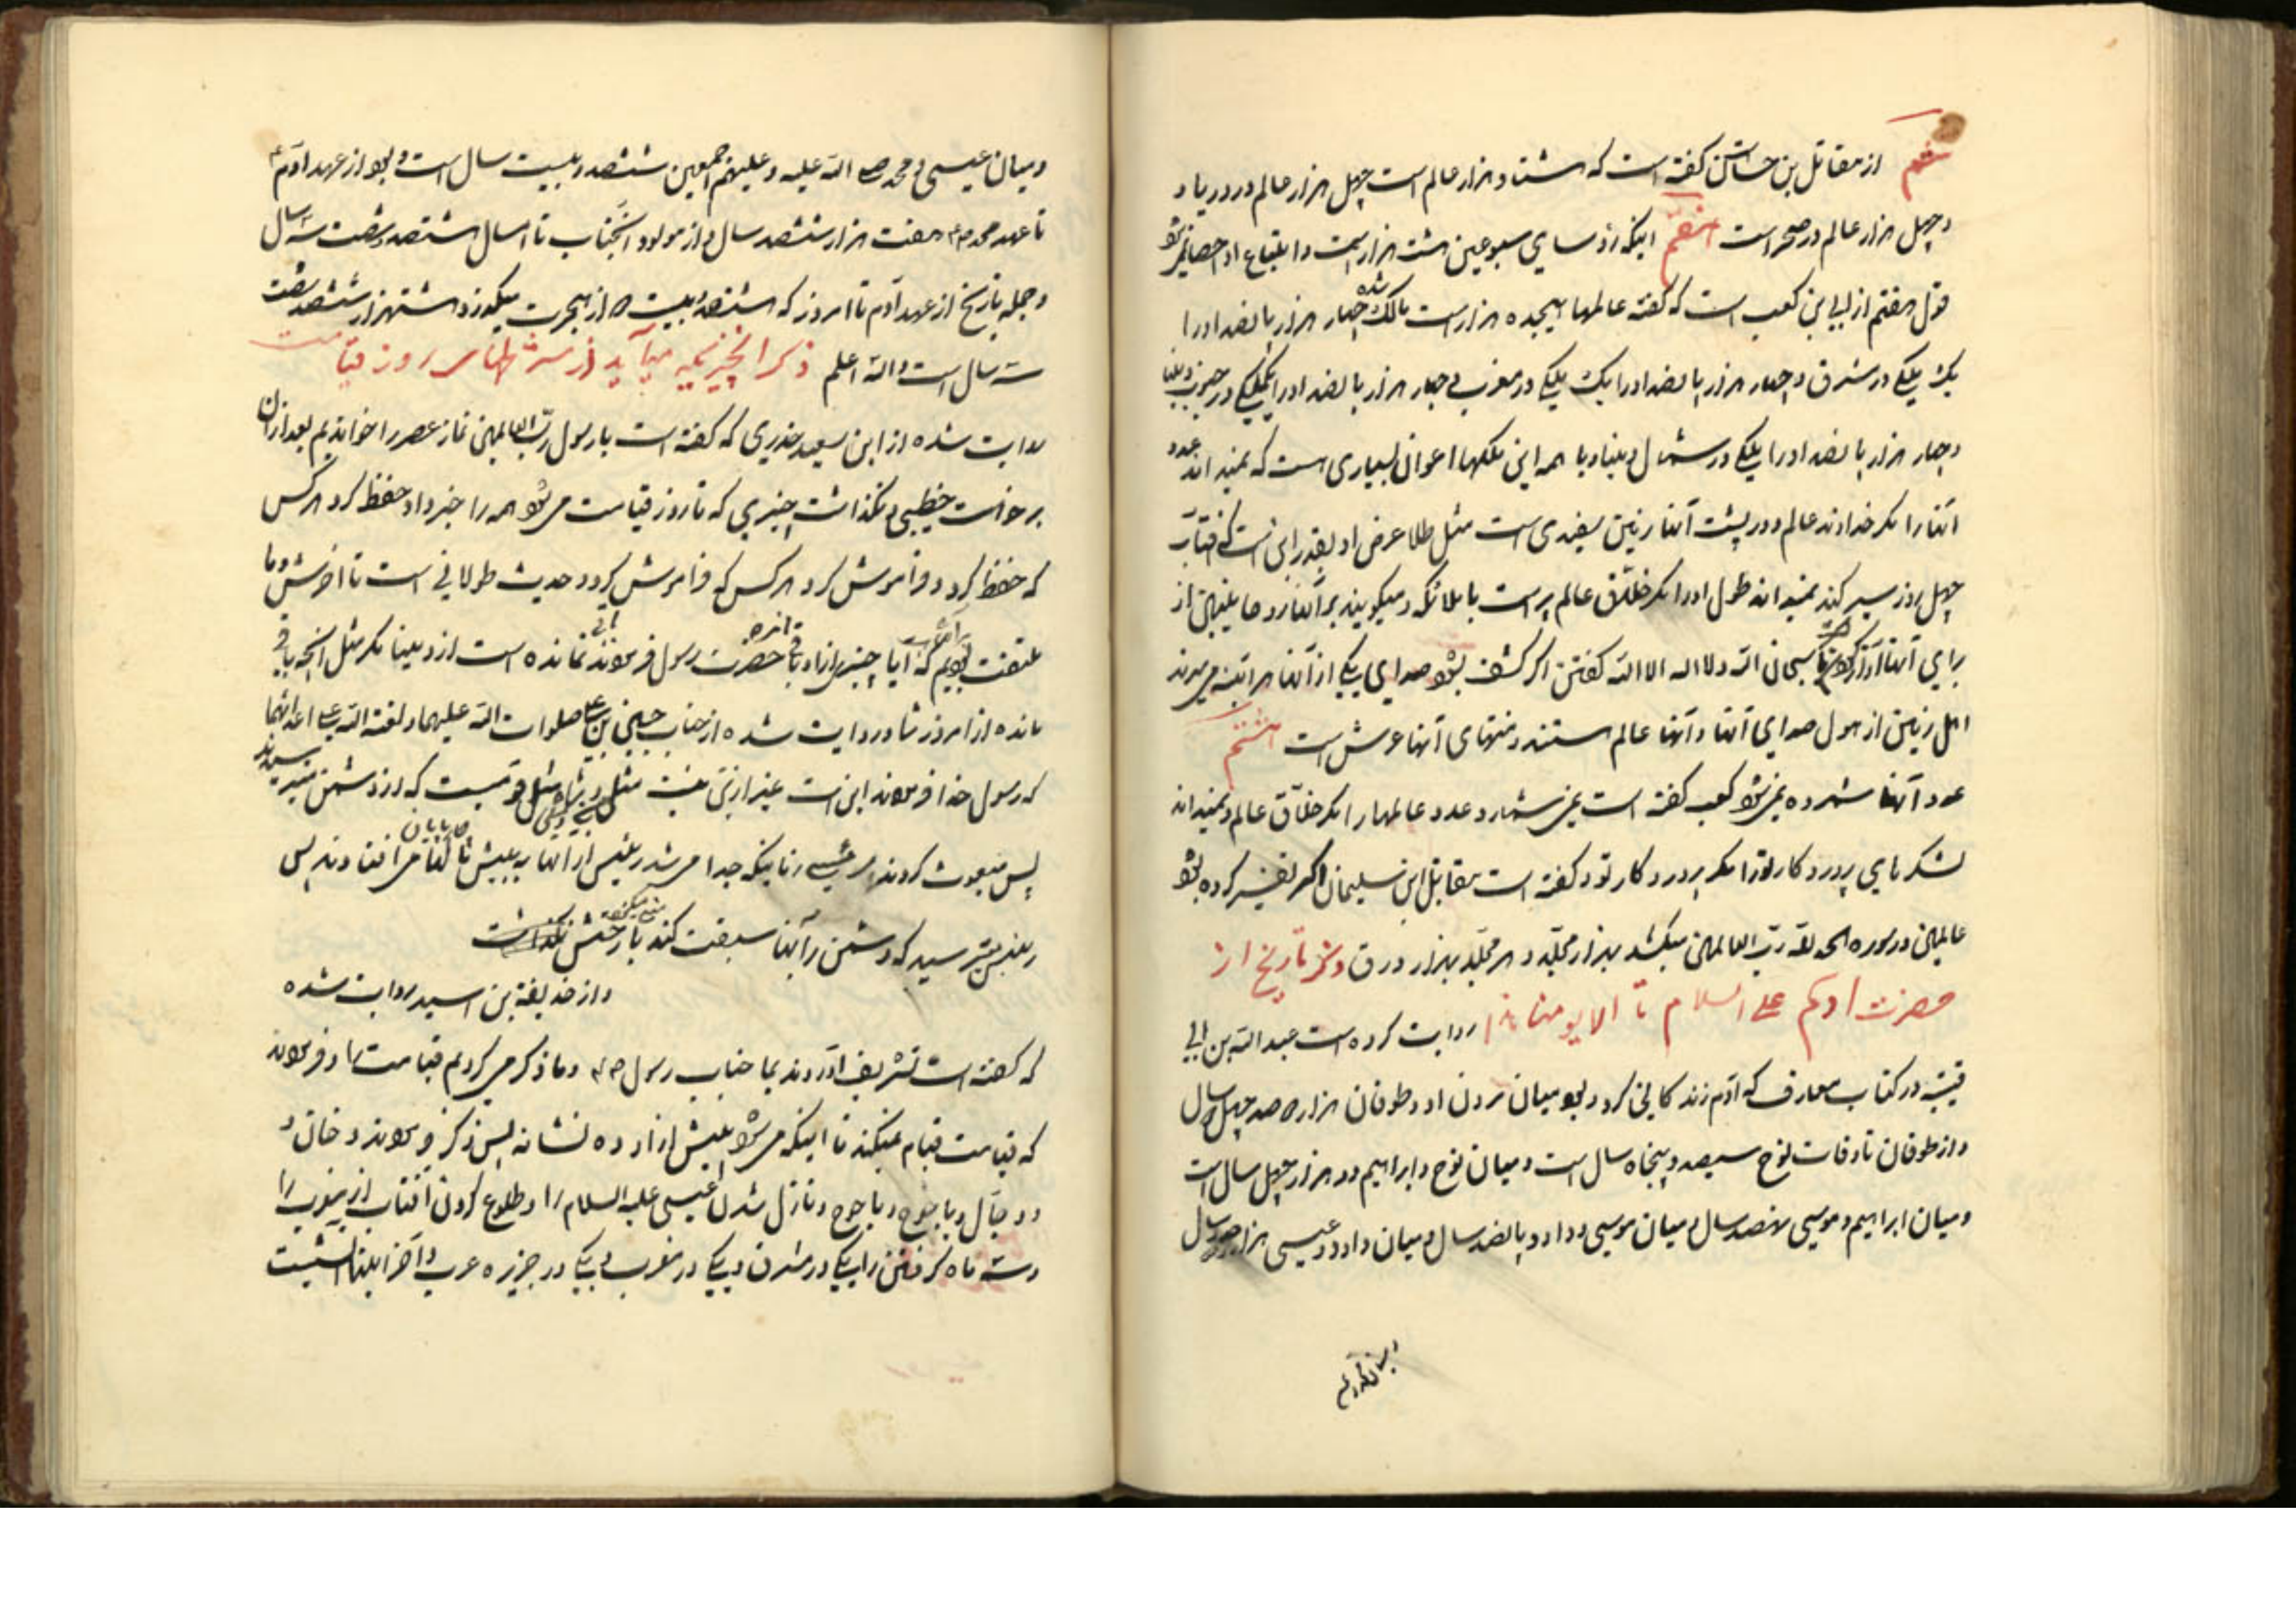 ششم از مقاتل بن حسان گفته است که هشتاد هزار عالم است چهل هزار عالم در دریا و
و چهل هزار عالم در صحراست هفتم اینکه از سبوعین هشت هزار است
قول هفتم از ابی ابن کعب است که گفته عالمها هیجده هزار است مالک شده چهار هزار پانصد او را
یک یکی در مشرق و چهار هزار پانصد او را یک یکی در مغرب و چهار هزار پانصد او را یکی در جنوب دنیا
و چهار هزار پانصد او را یکی در شمال دنیا و با همه این ملکها اعوان بسیاری است که نمیداند عدد
آنها را مگر خداوند عالم و در پشت آنها زمین سفیدی است مثل طلا عرض او بقدر این است که آفتاب
چهل روز سیر کند نمیداند طول او را مگر خلاق عالم پر است با ملائکه و میگویند بر آنها روحانیین از
برای آنها سبحان الله و لا اله الا الله گفتن اگر کشف بشود صدای یکی از آنها هر آینه می‌میرند
اهل زمین از هول صدای آنها و آنها عالم هستند و منتهای آنها عرش است هشتم
عدد آنها شمرده نمی‌شود کعب گفته است نمی‌شمارد عدد عالمها را مگر خلاق عالم و نمیداند
لشکرهای پروردکار تو را مگر پروردکار تو و گفته است مقاتل ابن سلیمان اگر تفسیر کرده بشود
عالمین در سوره الحمد لله رب العالمین میکشد بهزار مجلد و هر مجلد بهزار ورق ذکر تاریخ از
حضرت آدم علی السلام تا الا یومنا هذا روایت کرده است عبد الله بن ابی
قتیبه در کتاب معارف که آدم زندگانی کرد و بود میان مردن او و طوفان هزار صد چهل سال
و از طوفان تا وفات نوح سیصد و پنجاه سال است و میان نوح و ابراهیم دو هزار چهل سال است
و میان ابراهیم و موسی نهصد سال و میان موسی و داود پانصد سال و میان داود و عیسی هزار سال
و میان عیسی و محمد صلی الله علیه و علیهم اجمعین ششصد و بیست سال است و بود از عهد آدم ع
تا عهد محمد ص هفت هزار ششصد سال و از مولود آنجناب تا امسال ششصد و شصت سه سال
و جمله تاریخ از عهد آدم تا امروز که ششصد بیست ۵ از هجرت میگذرد هشتهزار ششصد شصت
سه سال است و الله اعلم ذکر آنچیزیکه میآید از شرطهای روز قیامت
روایت شده از ابن سعید خدری که گفته است با رسول رب العالمین نماز عصر را خواندیم بعد از آن
برخواست خطیبی و نگذاشت چیزی که تا روز قیامت می‌شود همه را خبر داد حفظ کرد هر کس
که حفظ کرد و فراموش کرد هر کس که فراموش کرد و حدیث طولانی است تا آخرش و ما
ملتفت بودیم که آیا چیزی از او باقی مانده حضرت رسول فرمودند باقی نمانده است از دنیا مگر مثل آنچه باقی
مانده از امروز شما و روایت شده از جناب حسین بن علی صلوات الله علیهما و لعنة الله علی اعدائهما
که رسول خدا فرمودند این است غیر از این نیست مثل من و شما مثل قومیست که از دشمن میترسیدند
پس مبعوث کردند رئیسی را تا اینکه جدا می‌شد رئیس از آنها به پیش تا آنها می افتادند پس
رئیس میترسید که دشمن بر آنها سبقت کند
و از حذیفة بن اسید روایت شده
که گفته است تشریف آوردند بما جناب رسول ص و ما ذکر می‌کردیم قیامت را و فرمودند
که قیامت قیام نمیکند تا اینکه می‌شود پیش از او ده نشانه پس ذکر فرمودند دخان و
و دجال و یاجوج و ماجوج و نازل شدن عیسی علیه السلام را و طلوع کردن آفتاب از مغرب را
و سه ماه گرفتن را یکی در مشرق و یکی در مغرب و یکی در جزیره عرب و آخر اینها آتشیست